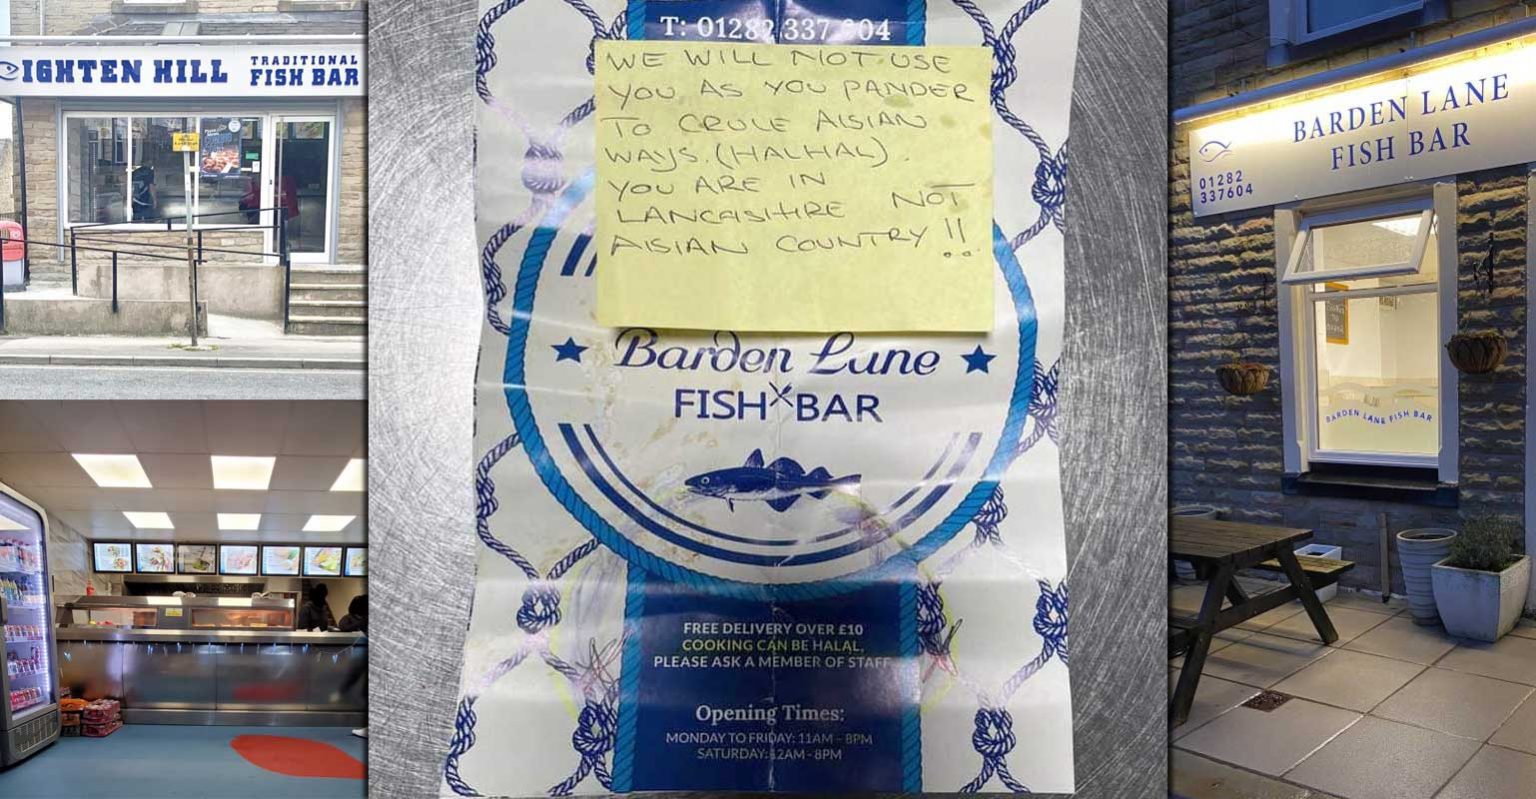 IGHTEN HILL
TRADITIONAL
FISH BAR
T: 01282 337 04
WE WILL NOT USE
YOU AS YOU PANDER
TO CRULE AISIAN
WAYS. (HALHAL).
YOU ARE IN
LANCASHIRE NOT
AISIAN COUNTRY !!
Barden Lane
FISH BAR
FREE DELIVERY OVER £10
COOKING CAN BE HALAL,
PLEASE ASK A MEMBER OF STAFF
Opening Times:
MONDAY TO FRIDAY: 11AM - 8PM
SATURDAY: 12AM - 8PM
BARDEN LANE
FISH BAR
01282
337604
BARDEN LANE FISH BAR